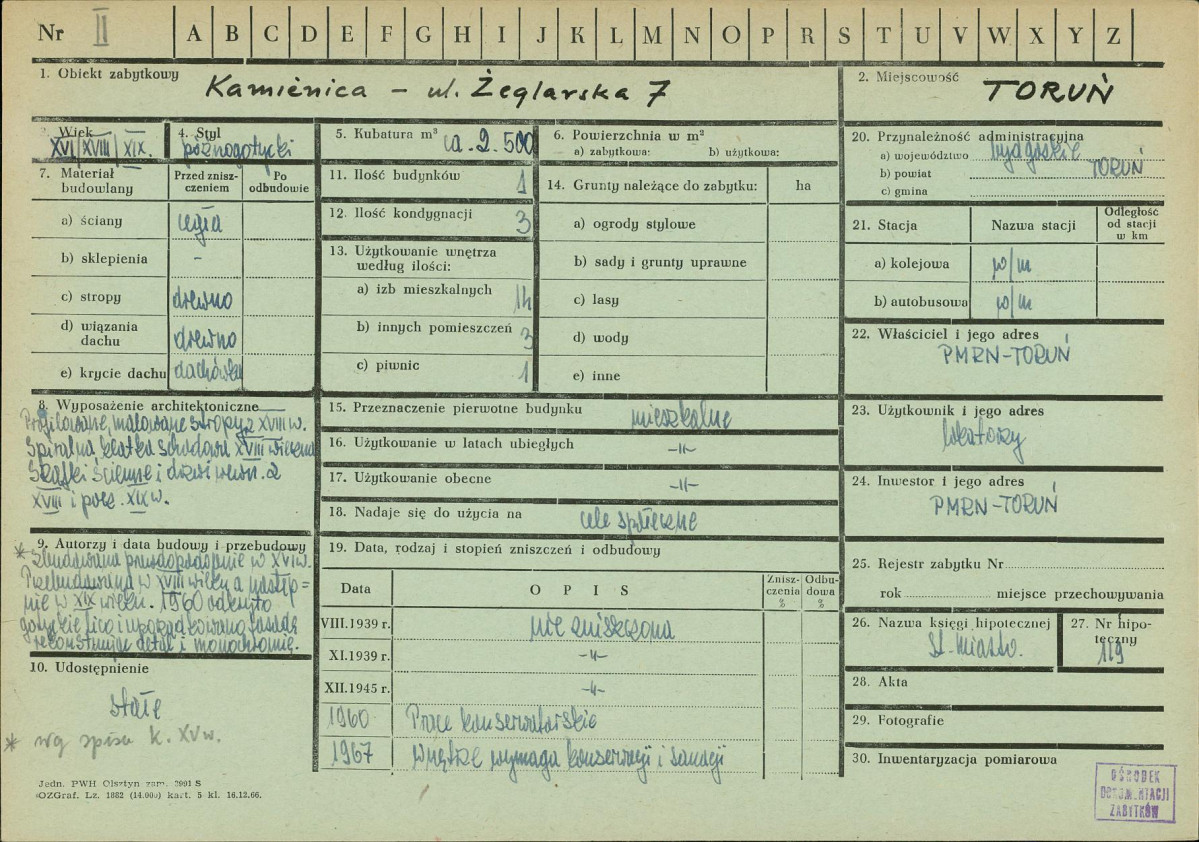 Nr II A B C D E F G H I J K L M N O P R S T U V W X Y Z
1. Obiekt zabytkowy
Kamienica – ul. Żeglarska 7
2. Miejscowość
TORUŃ
3. Wiek
XVI/XVIII/XIX.
4. Styl
późnogotycki
5. Kubatura m³ ca. 2.500
6. Powierzchnia w m²
a) zabytkowa: b) użytkowa:
7. Materiał budowlany
Przed zniszczeniem
Po odbudowie
a) ściany cegła
b) sklepienia –
c) stropy drewno
d) wiązania dachu drewno
e) krycie dachu dachówka
8. Wyposażenie architektoniczne
Profilowane, malowane stropy z XVIII w.
Spiralna klatka schodowa XVIII wieczna
Szafki ścienne i drzwi wewn. z
XVIII i pocz. XIX w.
9. Autorzy i data budowy i przebudowy
* Zbudowana prawdopodobnie w XVI w.
Przebudowana w XVIII wieku a następ=
nie w XIX wieku. 1960 odkryto
gotyckie lico i uporządkowano fasadę
rekonstruując detal i monochromię.
10. Udostępnienie
stałe
* wg spisu k. XV w.
11. Ilość budynków 1
12. Ilość kondygnacji 3
13. Użytkowanie wnętrza
według ilości:
a) izb mieszkalnych 14
b) innych pomieszczeń 3
c) piwnic 1
14. Grunty należące do zabytku: ha
a) ogrody stylowe
b) sady i grunty uprawne
c) lasy
d) wody
e) inne
15. Przeznaczenie pierwotne budynku mieszkalne
16. Użytkowanie w latach ubiegłych –"–
17. Użytkowanie obecne –"–
18. Nadaje się do użycia na cele społeczne
19. Data, rodzaj i stopień zniszczeń i odbudowy
Data O P I S Zniszczenia % Odbudowa %
VIII.1939 r. nie zniszczona
XI.1939 r. –"–
XII.1945 r. –"–
1960 Prace konserwatorskie
1967 Wnętrze wymaga konserwacji i sanacji
20. Przynależność administracyjna
a) województwo bydgoskie
b) powiat TORUŃ
c) gmina
21. Stacja Nazwa stacji Odległość od stacji w km
a) kolejowa w/m
b) autobusowa w/m
22. Właściciel i jego adres
PMRN-TORUŃ
23. Użytkownik i jego adres
lokatorzy
24. Inwestor i jego adres
PMRN-TORUŃ
25. Rejestr zabytku Nr
rok miejsce przechowywania
26. Nazwa księgi hipotecznej
St-Miasto.
27. Nr hipoteczny
119
28. Akta
29. Fotografie
30. Inwentaryzacja pomiarowa
OŚRODEK
DOKUMENTACJI
ZABYTKÓW
Jedn. PWH Olsztyn zam. 2991 S
OZGraf. Lz. 1882 (14.000) kart. 5 kl. 16.12.66.